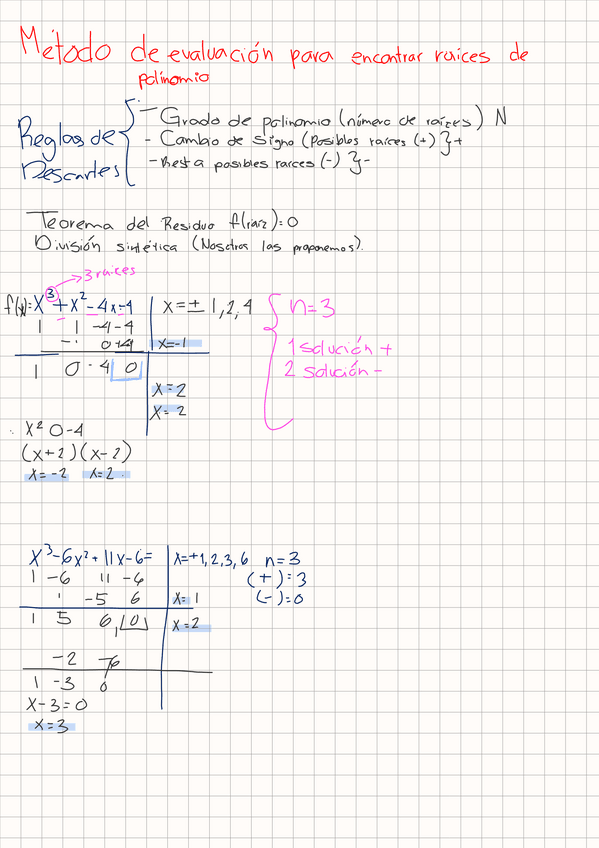 Método de evaluación para encontrar raices de
polínomio
Reglas de
Descartes
- Grado de polinomio (número de raízes) N
- Cambio de Signo (Posibles raíces (+) }+
- Resta posibles raices (-) }-
Teorema del Residuo f(raiz)=0
División sintética (Nosotros las proponemos).
→3 raices
f(x)=x³+x²-4x-4
x=± 1,2,4
1 1 -4 -4
-1 0 +4
x=-1
1 0 -4 0
x=2
x=2
n=3
1 solución +
2 solución -
x² 0-4
(x+2)(x-2)
x=-2 x=2.
x³-6x²+11x-6=
x=+1,2,3,6
n=3
(+)=3
(-)=0
1 -6 11 -6
1 -5 6
x=1
1 5 6 0
x=2
-2
1 -3 0
x-3=0
x=3